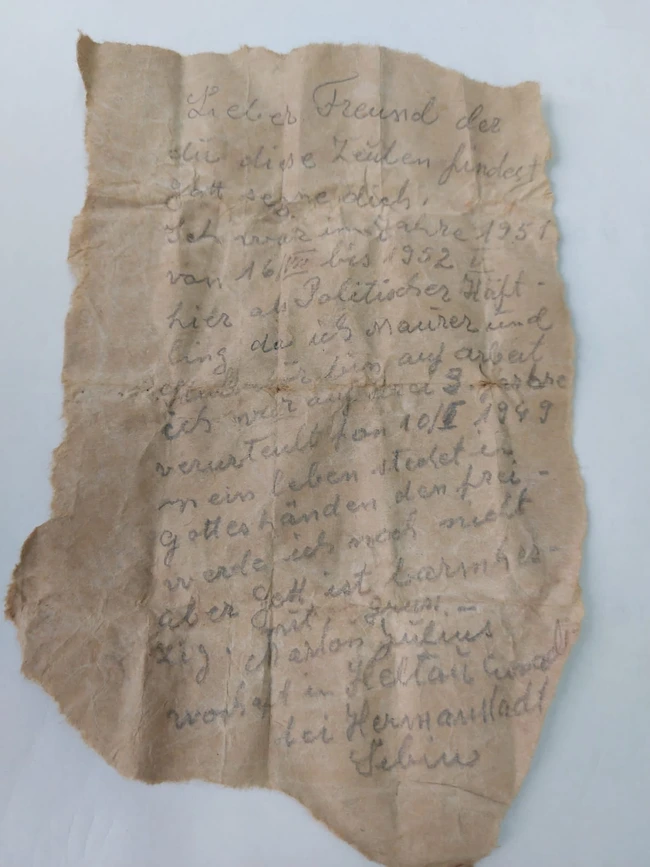 Lieber Freund der
du diese Zeilen findest
Gott segne dich.
Ich war im Jahre 1951
von 16/VIII bis 1952
hier als Politischer Häft-
ling da ich Maurer und
auf arbeit
ich war auf 3 Jahre
verurteult fon 10/I 1949
mein leben stedet in
gotteshänden den frei-
werde ich noch nicht
aber gott ist barmher-
zig. mit grus. -
Marton Julius
wonhaft in Heltau
bei Hermanstadt
Sebiu